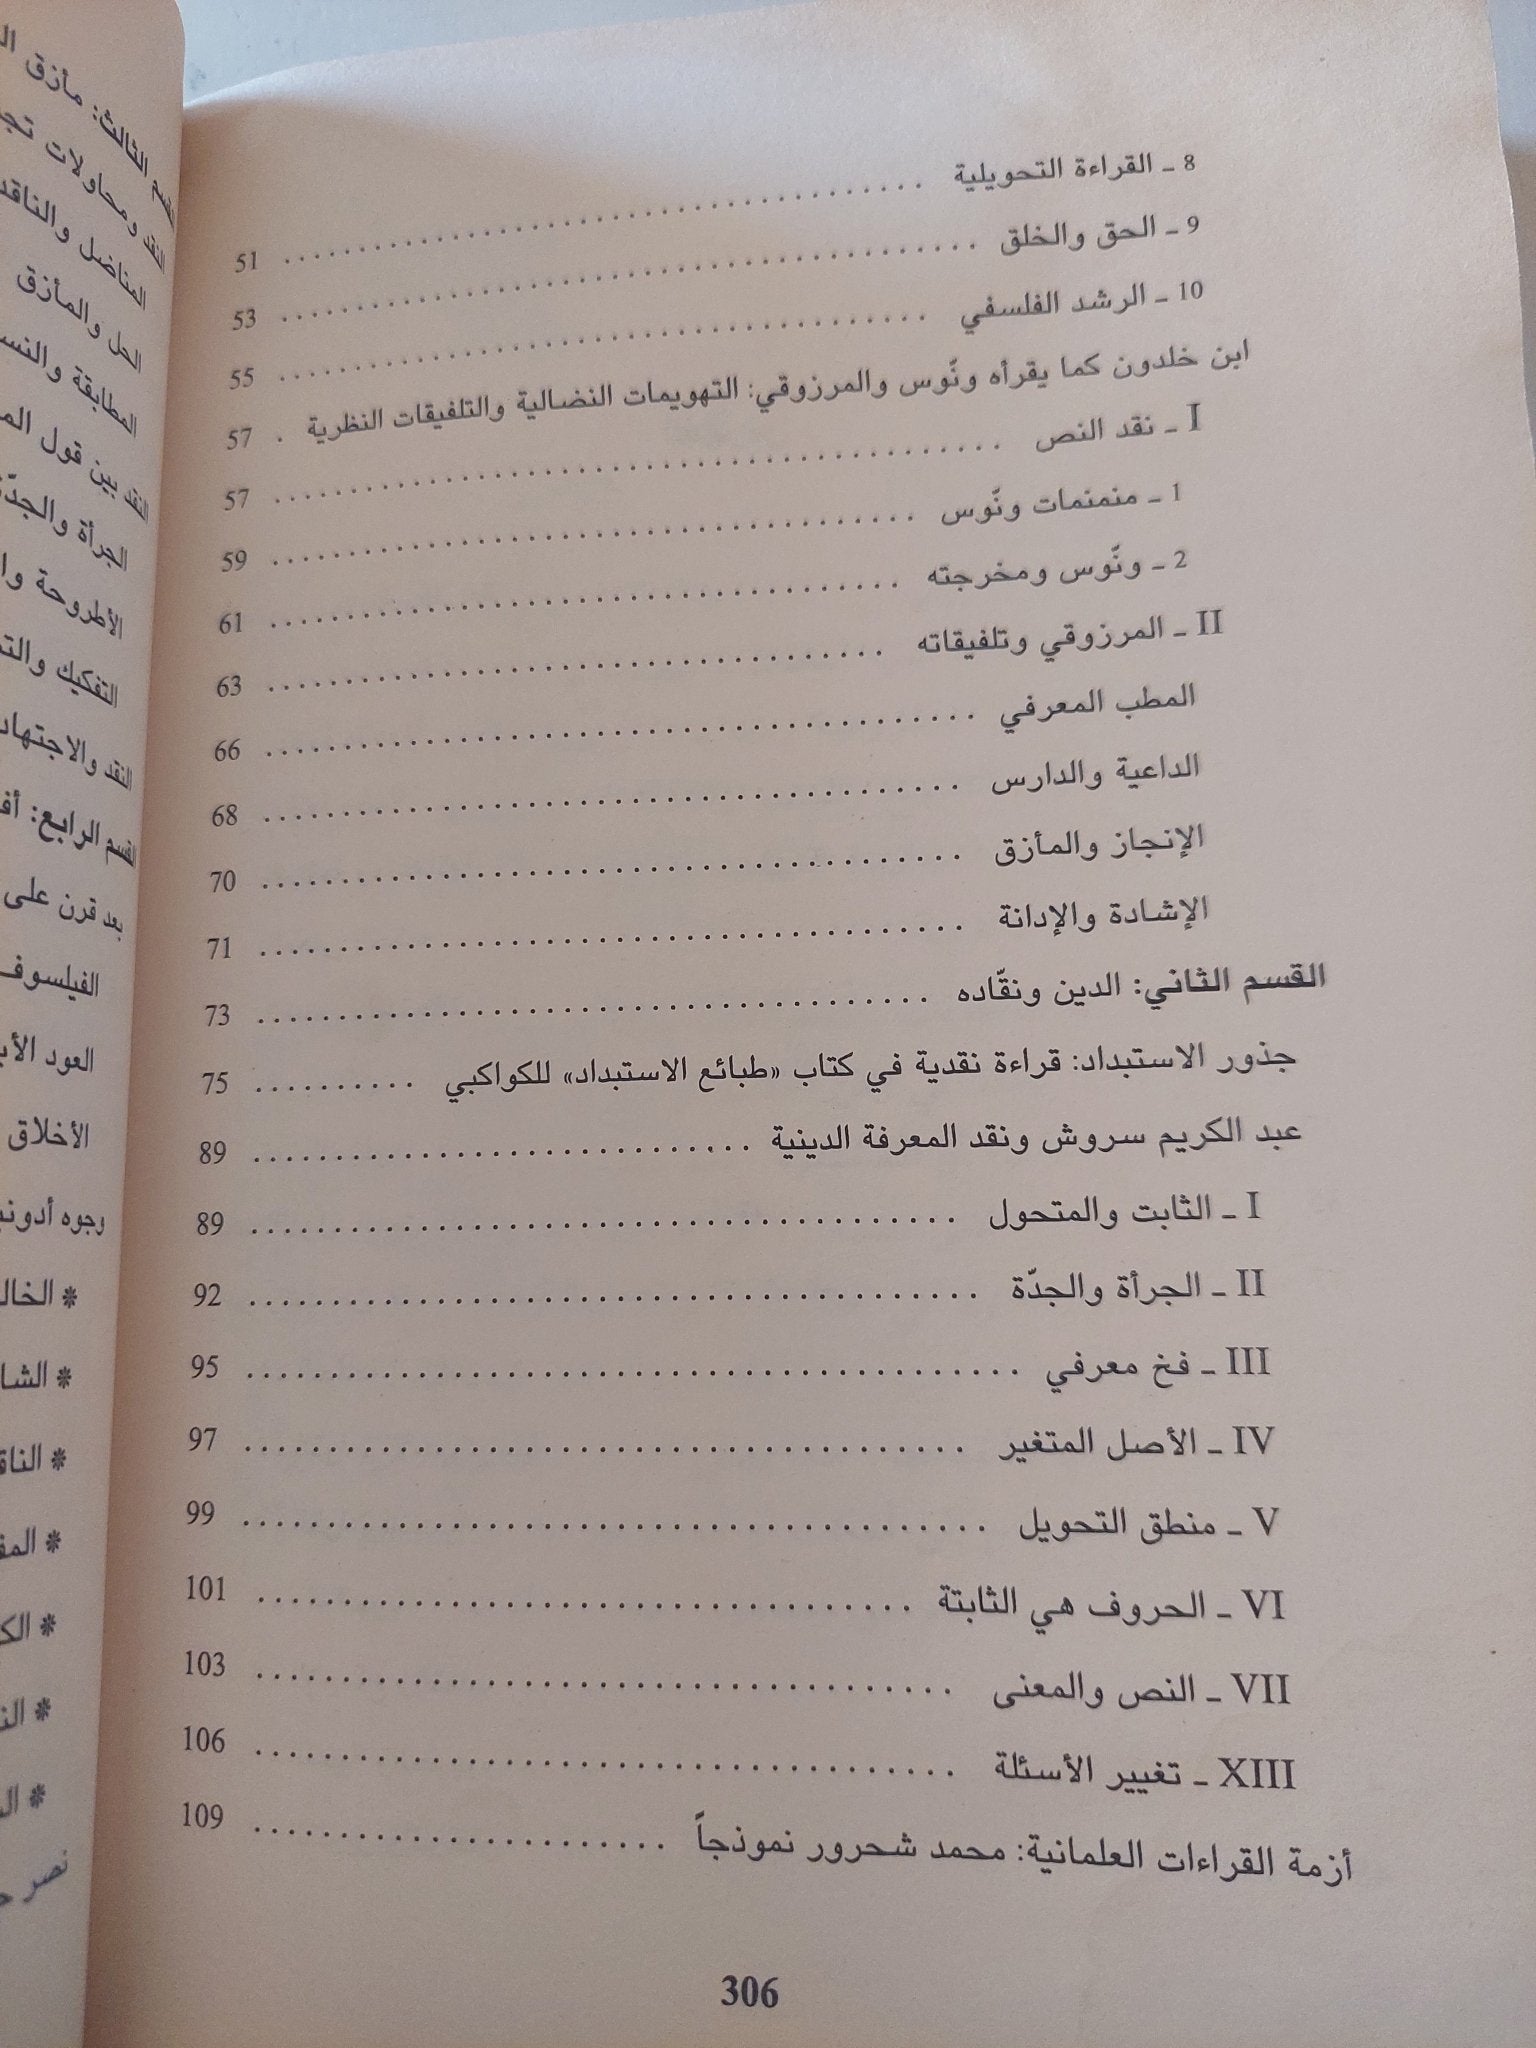 8 ـ القراءة التحويلية . . . . . . . . . . 51
9 ـ الحق والخلق . . . . . . . . . . 53
10 ـ الرشد الفلسفي . . . . . . . . . . 55
ابن خلدون كما يقرأه ونّوس والمرزوقي: التهويمات النضالية والتلفيقات النظرية . 57
I ـ نقد النص . . . . . . . . . . 57
1 ـ منمنمات ونّوس . . . . . . . . . . 59
2 ـ ونّوس ومخرجته . . . . . . . . . . 61
II ـ المرزوقي وتلفيقاته . . . . . . . . . . 63
المطب المعرفي . . . . . . . . . . 66
الداعية والدارس . . . . . . . . . . 68
الإنجاز والمأزق . . . . . . . . . . 70
الإشادة والإدانة . . . . . . . . . . 71
القسم الثاني: الدين ونقّاده . . . . . . . . . . 73
جذور الاستبداد: قراءة نقدية في كتاب «طبائع الاستبداد» للكواكبي . . . . . . . . . . 75
عبد الكريم سروش ونقد المعرفة الدينية . . . . . . . . . . 89
I ـ الثابت والمتحول . . . . . . . . . . 89
II ـ الجرأة والجدّة . . . . . . . . . . 92
III ـ فخ معرفي . . . . . . . . . . 95
IV ـ الأصل المتغير . . . . . . . . . . 97
V ـ منطق التحويل . . . . . . . . . . 99
VI ـ الحروف هي الثابتة . . . . . . . . . . 101
VII ـ النص والمعنى . . . . . . . . . . 103
XIII ـ تغيير الأسئلة . . . . . . . . . . 106
أزمة القراءات العلمانية: محمد شحرور نموذجاً . . . . . . . . . . 109
306
الثالث: مأزق
النقد ومحاولات
المناضل والناقد
الحل والمأزق
المطابقة
النقد بين قول
الجرأة والجدّة
الأطروحة
التفكيك
النقد والاجتهاد
القسم الرابع:
بعد قرن على
الفيلسوف
العود
الأخلاق
وجوه
*
*
*
*
*
*
*
نصر